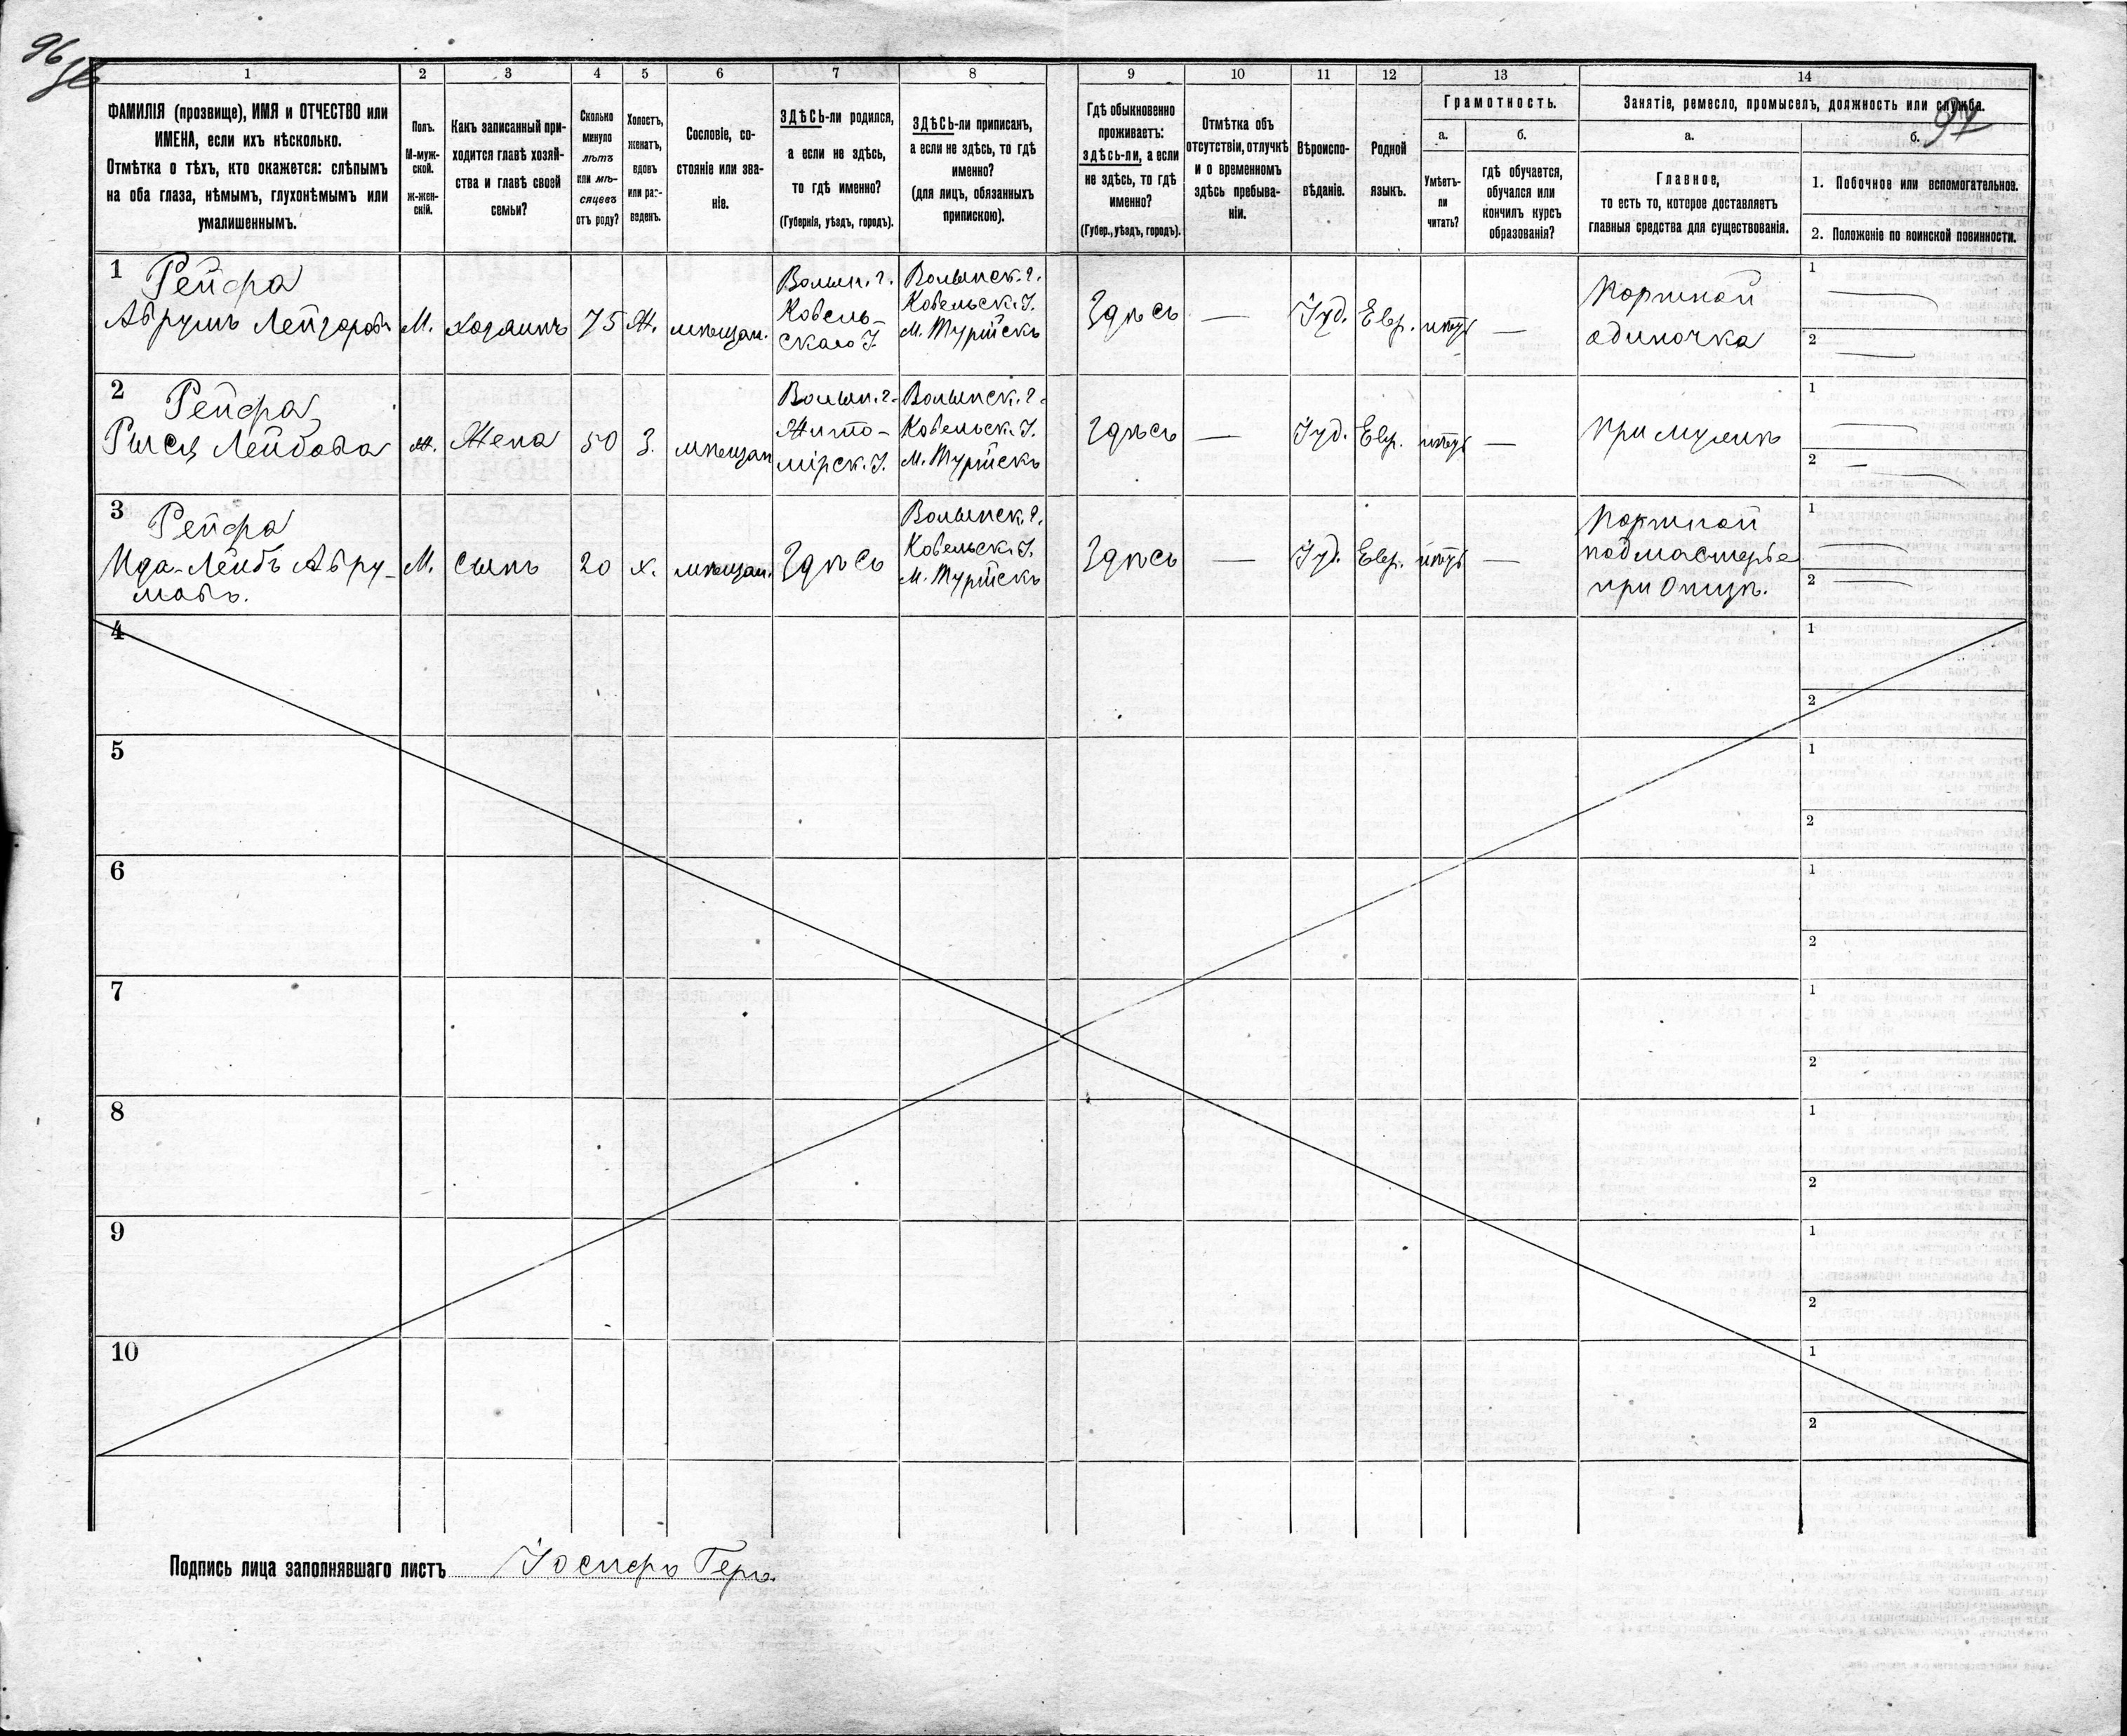 96
97
1
2
3
4
5
6
7
8
9
10
11
12
13
14
ФАМИЛІЯ (прозвище), ИМЯ и ОТЧЕСТВО или
ИМЕНА, если ихъ нѣсколько.
Отмѣтка о тѣхъ, кто окажется: слѣпымъ
на оба глаза, нѣмымъ, глухонѣмымъ или
умалишеннымъ.
Полъ.
М-муж-
ской.
ж-жен-
скій.
Какъ записанный при-
ходится главѣ хозяй-
ства и главѣ своей
семьи?
Сколько
минуло
лѣтъ
или мѣ-
сяцевъ
отъ роду?
Холостъ,
женатъ,
вдовъ
или раз-
веденъ.
Сословіе, со-
стояніе или зва-
ніе.
ЗДѢСЬ-ли родился,
а если не здѣсь,
то гдѣ именно?
(Губернія, уѣздъ, городъ).
ЗДѢСЬ-ли приписанъ,
а если не здѣсь, то гдѣ
именно?
(для лицъ, обязанныхъ
припискою).
Гдѣ обыкновенно
проживаетъ:
здѣсь-ли, а если
не здѣсь, то гдѣ
именно?
(Губер., уѣздъ, городъ).
Отмѣтка объ
отсутствіи, отлучкѣ
и о временномъ
здѣсь пребыва-
ніи.
Вѣроиспо-
вѣданіе.
Родной
языкъ.
Грамотность.
а.
б.
Умѣетъ-
ли
читать?
гдѣ обучается,
обучался или
кончилъ курсъ
образованія?
Занятіе, ремесло, промыселъ, должность или служба.
а.
б.
Главное,
то есть то, которое доставляетъ
главныя средства для существованія.
1. Побочное или вспомогательное.
2. Положеніе по воинской повинности.
1
Рейфа
Аврумъ Лейзоровъ
М.
хозяинъ
75
Ж.
мѣщан.
Волын. г.
Ковель-
скаго У.
Волынск. г.
Ковельск. У.
м. Турійскъ
Здѣсь
—
Іуд.
Евр.
нѣтъ
—
Портной
одиночка
1
2
2
Рейфа
Рыся Лейбова
ж.
Жена
50
З.
мѣщан
Волын. г.
Жито-
мірск. У.
Волынск. г.
Ковельск. У.
м. Турійскъ
Здѣсь
—
Іуд.
Евр.
нѣтъ
—
при мужѣ
1
2
3
Рейфа
Ида-Лейбъ Авру-
мовъ.
М.
сынъ
20
х.
мѣщан.
Здѣсь
Волынск. г.
Ковельск. У.
м. Турійскъ
Здѣсь
—
Іуд.
Евр.
нѣтъ
—
Портной
подмастерье
при отцѣ.
1
2
4
1
2
5
1
2
6
1
2
7
1
2
8
1
2
9
1
2
10
1
2
Подпись лица заполнявшаго листъ Іосифъ Геръ